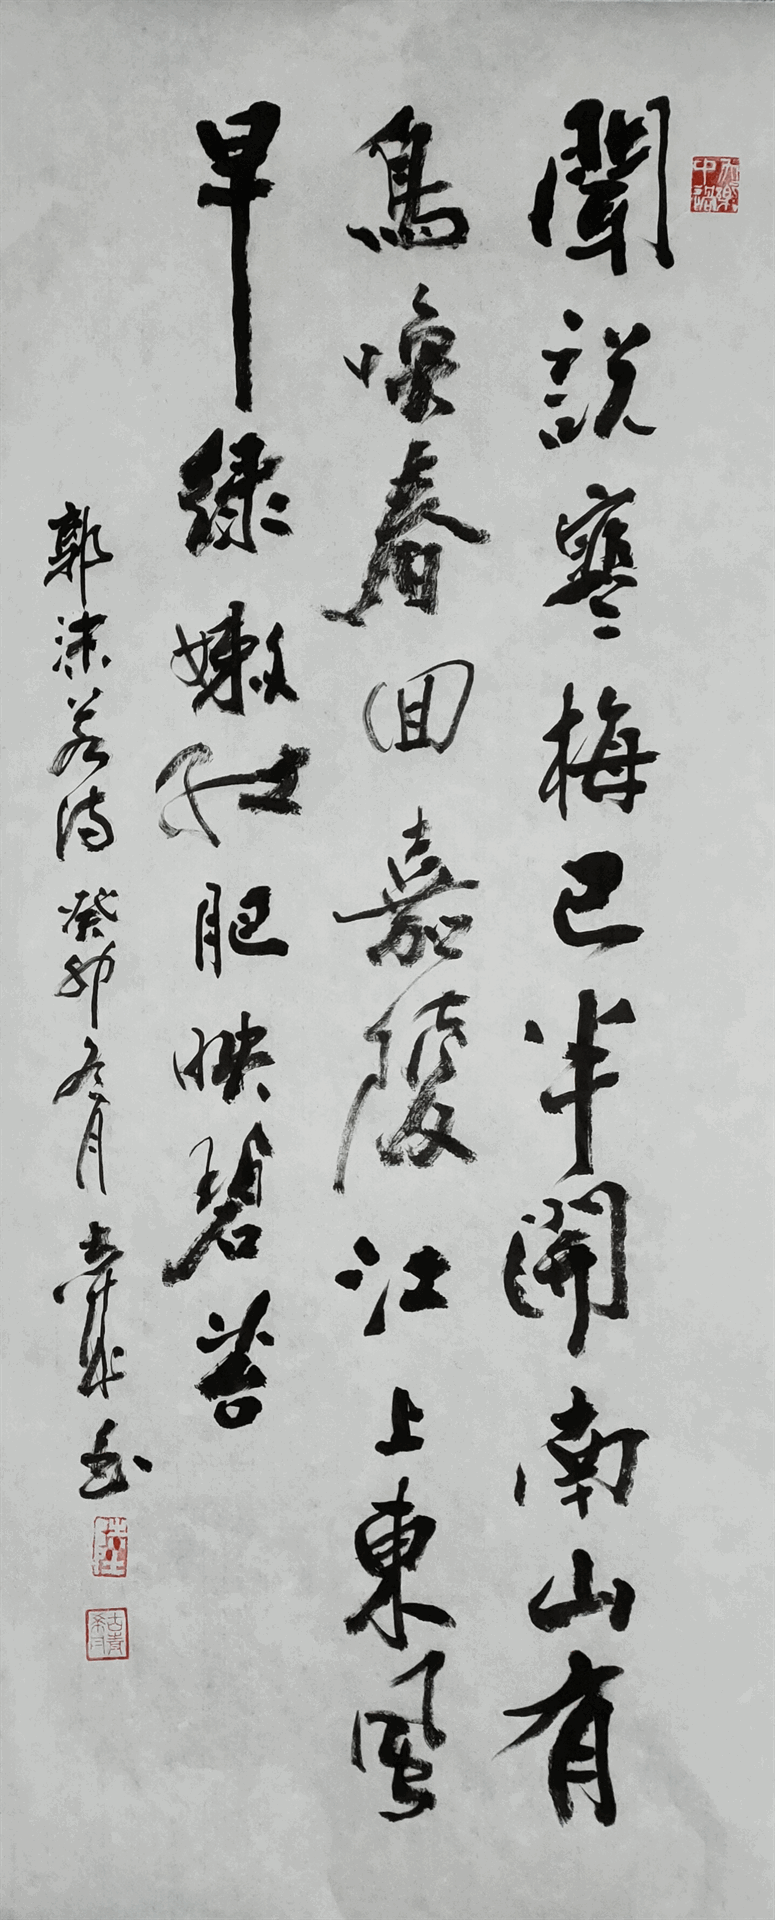 聞説寒梅已半開南山有
鳥喚春回嘉陵江上東風
早緑嫩红肥映碧苔
郭沫若诗癸卯冬月